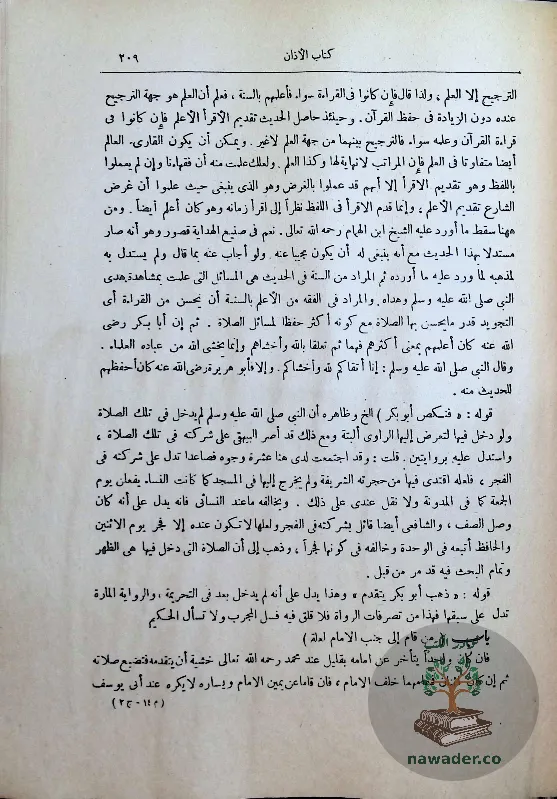 كتاب الأذان
٢٠٩
الترجيح إلا العلم ، ولذا قال فإن كانوا فى القراءة سواء فأعلمهم بالسنة ، فعلم أن العلم هو جهة الترجيح
عنده دون الزيادة فى حفظ القرآن . وحينئذ حاصل الحديث تقديم الأقرأ الأعلم فإن كانوا فى
قراءة القرآن وعلمه سواء فالترجيح بينهما من جهة العلم لا غير . ويمكن أن يكون القارىء العالم
أيضا متفاوتا فى العلم فإن المراتب لانهاية لها وكذا العلم . ولعلك علمت منه أن فقهاءنا وإن لم يعملوا
باللفظ وهو تقديم الأقرأ إلا أنهم قد عملوا بالغرض وهو الذى ينبغى حيث علموا أن غرض
الشارع تقديم الأعلم ، وإنما قدم الأقرأ فى اللفظ نظراً إلى اقرأ زمانه وهو كان أعلم أيضاً . ومن
ههنا سقط ما أورد عليه الشيخ ابن الهمام رحمه الله تعالى . نعم فى صنيع الهداية قصور وهو أنه صار
مستدلا بهذا الحديث مع أنه ينبغى له أن يكون مجيبا عنه . ولو أجاب عنه بما قال ولم يستدل به
لمذهبه لما ورد عليه ما أورده ثم المراد من السنة فى الحديث هى المسائل التى علمت بمشاهدة هدى
النبى صلى الله عليه وسلم وهداه . والمراد فى الفقه من الأعلم بالسنة أن يحسن من القراءة أى
التجويد قدر مايحسن بها الصلاة مع كونه أكثر حفظا لمسائل الصلاة . ثم إن أبا بكر رضى
الله عنه كان أعلمهم بمعنى أكثرهم فهما ثم تعلقا بالله وأخشاهم وإنما يخشى الله من عباده العلماء .
وقال النبى صلى الله عليه وسلم : إنا أتقاكم لله وأخشاكم . وإلا فأبو هريرة رضى الله عنه كان أحفظهم
للحديث منه .
قوله : « فنكص أبو بكر ) الخ وظاهره أن النبى صلى الله عليه وسلم لم يدخل فى تلك الصلاة
ولو دخل فيها لتعرض إليها الراوى ألبتة ومع ذلك قد أصر البيهقى على شركته فى تلك الصلاة ،
واستدل عليه بروايتين . قلت : وقد اجتمعت لدى هنا عشرة وجوه فصاعدا تدل على شركته فى
الفجر ، فلعله اقتدى فيها من حجرته الشريفة ولم يخرج إليها فى المسجد كما كانت النساء يفعلن يوم
الجمعة كما فى المدونة ولا نقل عندى على ذلك . ويخالفه ماعند النسائى فانه يدل على أنه كان
وصل الصف ، والشافعى أيضا قائل بشركته فى الفجر ولعلها لا تكون عنده إلا فجر يوم الاثنين
والحافظ أتبعه فى الوحدة وخالفه فى كونها فجراً ، وذهب إلى أن الصلاة التى دخل فيها هى الظهر
وتمام البحث فيه قد مر من قبل .
قوله : « ذهب أبو بكر يتقدم » وهذا يدل على أنه لم يدخل بعد فى التحريمة ، والرواية المارة
تدل على سبقها فهذا من تصرفات الرواة فلا قلق فيه فسل المجرب ولا تسأل الحكيم
باب ( من قام إلى جنب الامام لعلة )
فان كان واحداً يتأخر عن امامه بقليل عند محمد رحمه الله تعالى خشية أن يتقدمه فتضيع صلاته
ثم إن كان خلف الامام ، فان قاما عن يمين الامام ويساره لايكره عند أبى يوسف
( م ١٤ - ج ٢ )
nawader.co